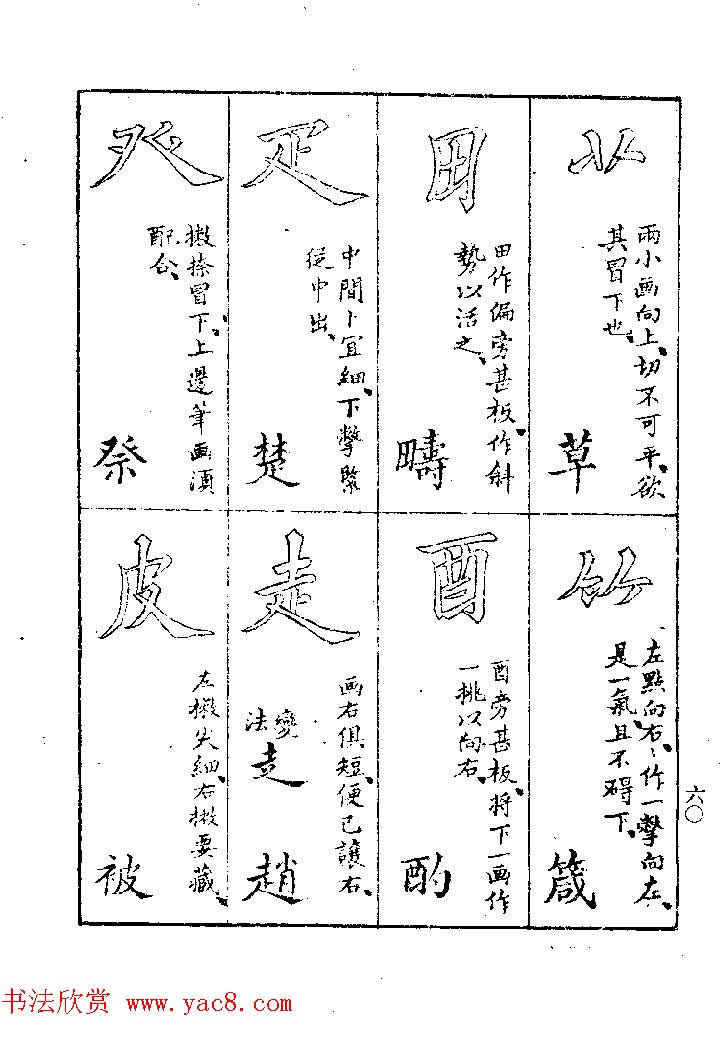 兩小画向上、切不可平、欲
其冒下也、
草
田
田作偏旁甚板、作斜
勢以活之、
疇
疋
中間卜宜細、下撆緊
從中出、
楚
癶
撇捺冒下、上邊筆画須
配合、
祭
竹
左點向右、作一撆向左、
是一氣、且不碍下、
箴
酉
酉旁甚板、将下一画作
一挑以向右、
酌
走
画右俱短、便已讓右、
變
法
走
趙
皮
左撇尖細、右撇要藏、
被
六〇
书法欣赏 www.yac8.com